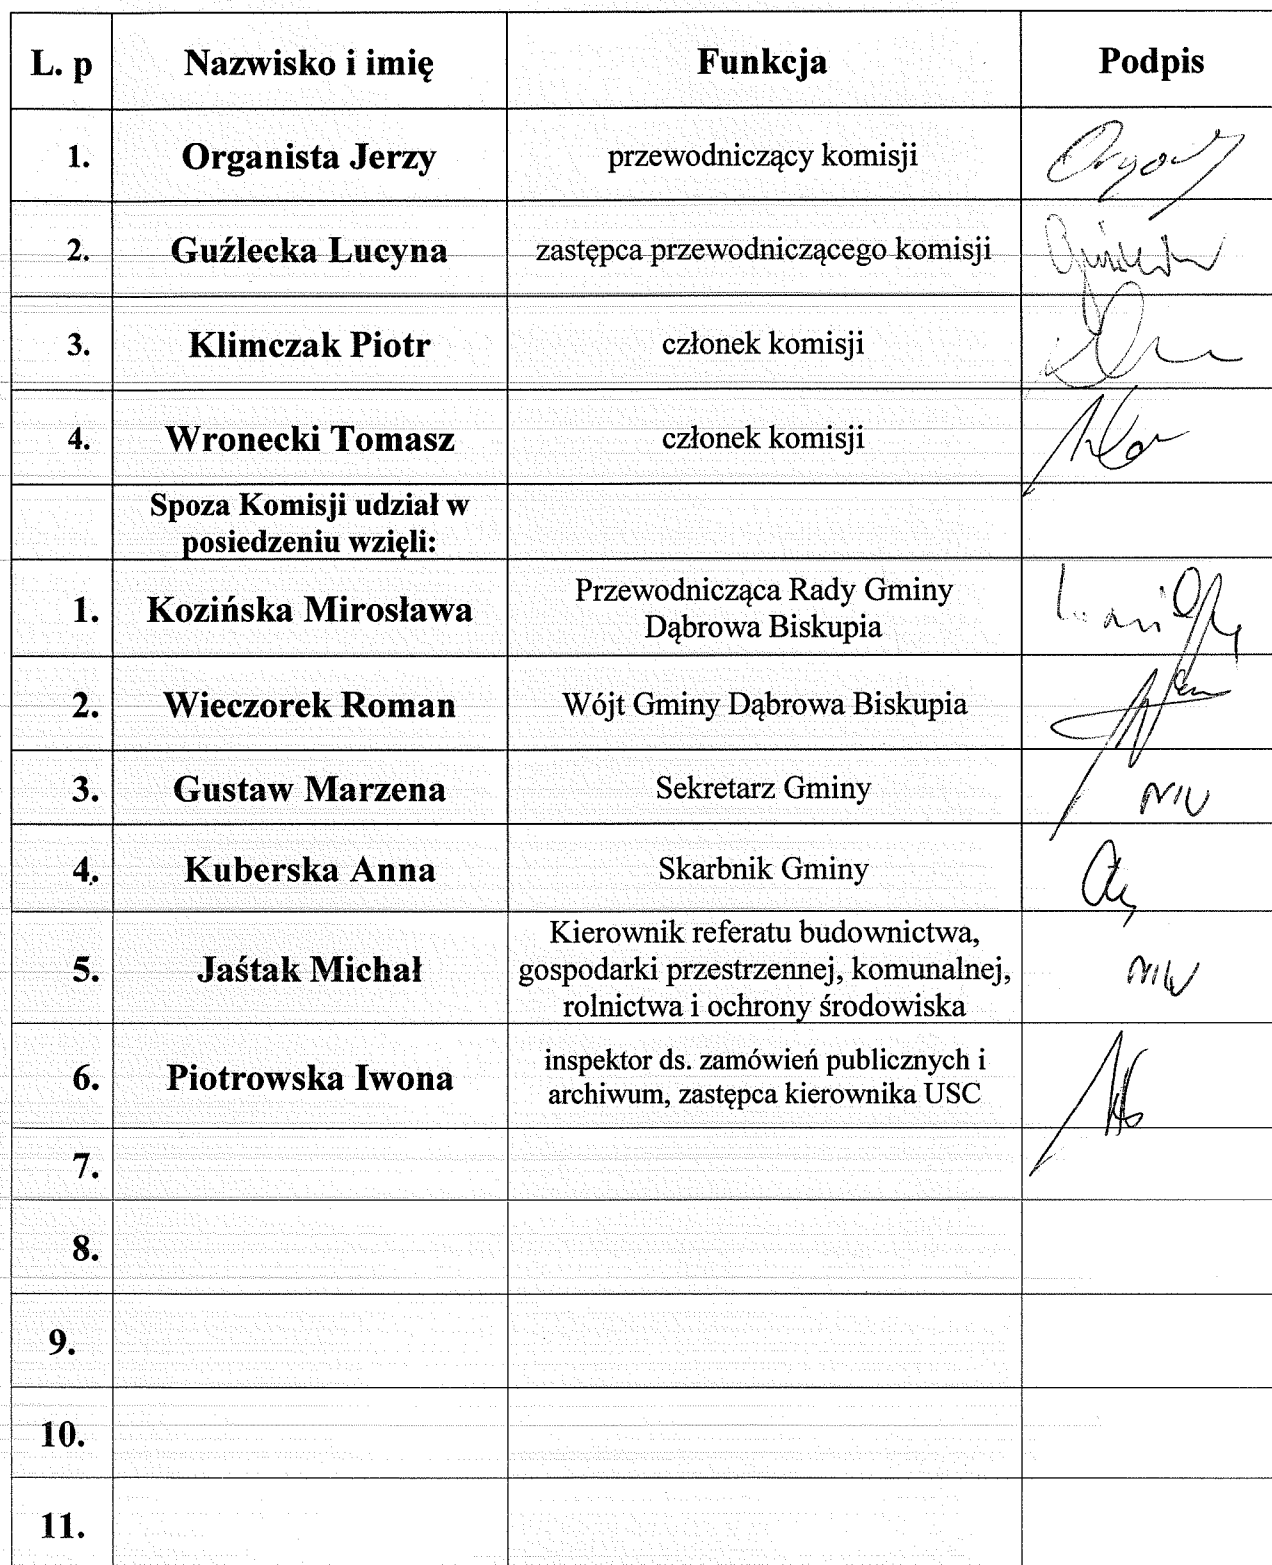 L. p Nazwisko i imię Funkcja Podpis
1. Organista Jerzy przewodniczący komisji
2. Guźlecka Lucyna zastępca przewodniczącego komisji
3. Klimczak Piotr członek komisji
4. Wronecki Tomasz członek komisji
Spoza Komisji udział w
posiedzeniu wzięli:
1. Kozińska Mirosława Przewodnicząca Rady Gminy
Dąbrowa Biskupia
2. Wieczorek Roman Wójt Gminy Dąbrowa Biskupia
3. Gustaw Marzena Sekretarz Gminy
4. Kuberska Anna Skarbnik Gminy
5. Jaśtak Michał Kierownik referatu budownictwa,
gospodarki przestrzennej, komunalnej,
rolnictwa i ochrony środowiska
6. Piotrowska Iwona inspektor ds. zamówień publicznych i
archiwum, zastępca kierownika USC
7.
8.
9.
10.
11.